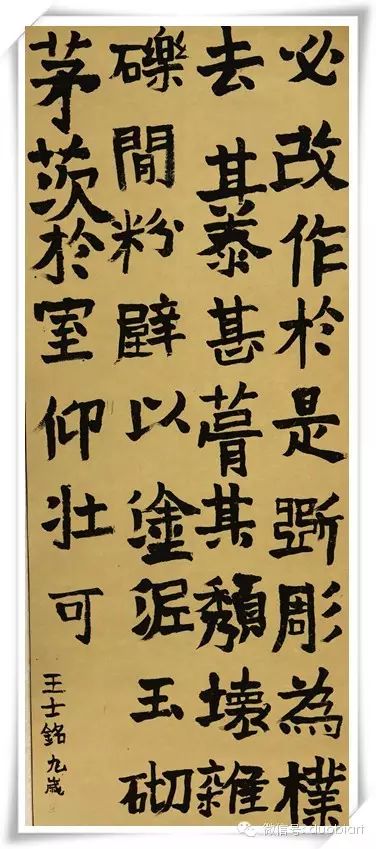 必改作於是斲彫為樸
去其泰甚葺其頹壞雜
礫閒粉壁以塗泥玉砌
茅茨於室仰壯可
王士銘九歲
微信号: duobiari